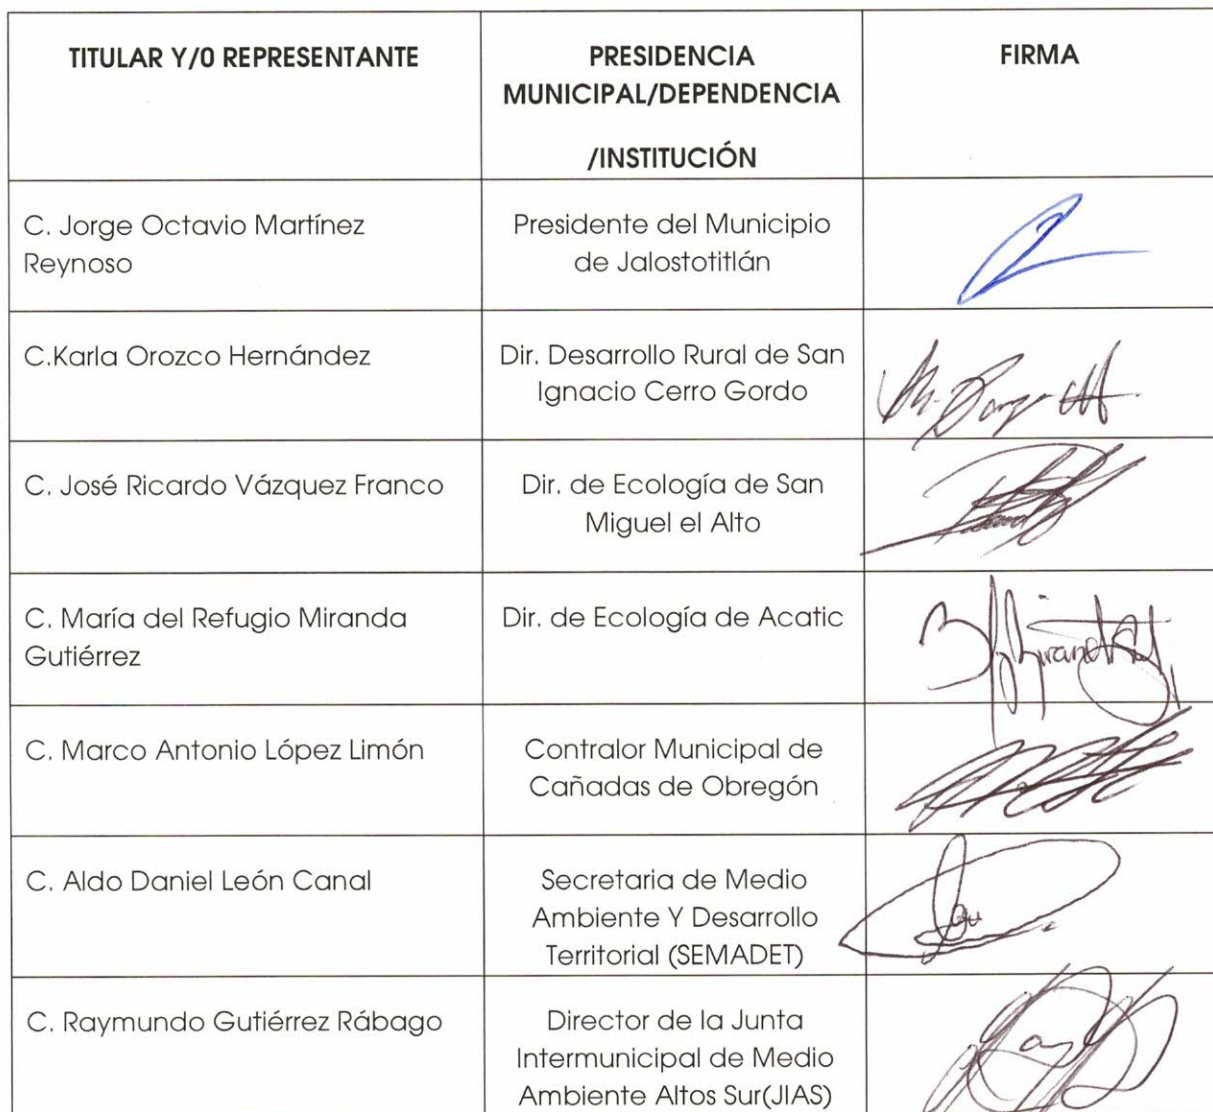 TITULAR Y/0 REPRESENTANTE
PRESIDENCIA
MUNICIPAL/DEPENDENCIA
/INSTITUCIÓN
FIRMA
C. Jorge Octavio Martínez
Reynoso
Presidente del Municipio
de Jalostotitlán
C.Karla Orozco Hernández
Dir. Desarrollo Rural de San
Ignacio Cerro Gordo
C. José Ricardo Vázquez Franco
Dir. de Ecología de San
Miguel el Alto
C. María del Refugio Miranda
Gutiérrez
Dir. de Ecología de Acatic
C. Marco Antonio López Limón
Contralor Municipal de
Cañadas de Obregón
C. Aldo Daniel León Canal
Secretaria de Medio
Ambiente Y Desarrollo
Territorial (SEMADET)
C. Raymundo Gutiérrez Rábago
Director de la Junta
Intermunicipal de Medio
Ambiente Altos Sur(JIAS)